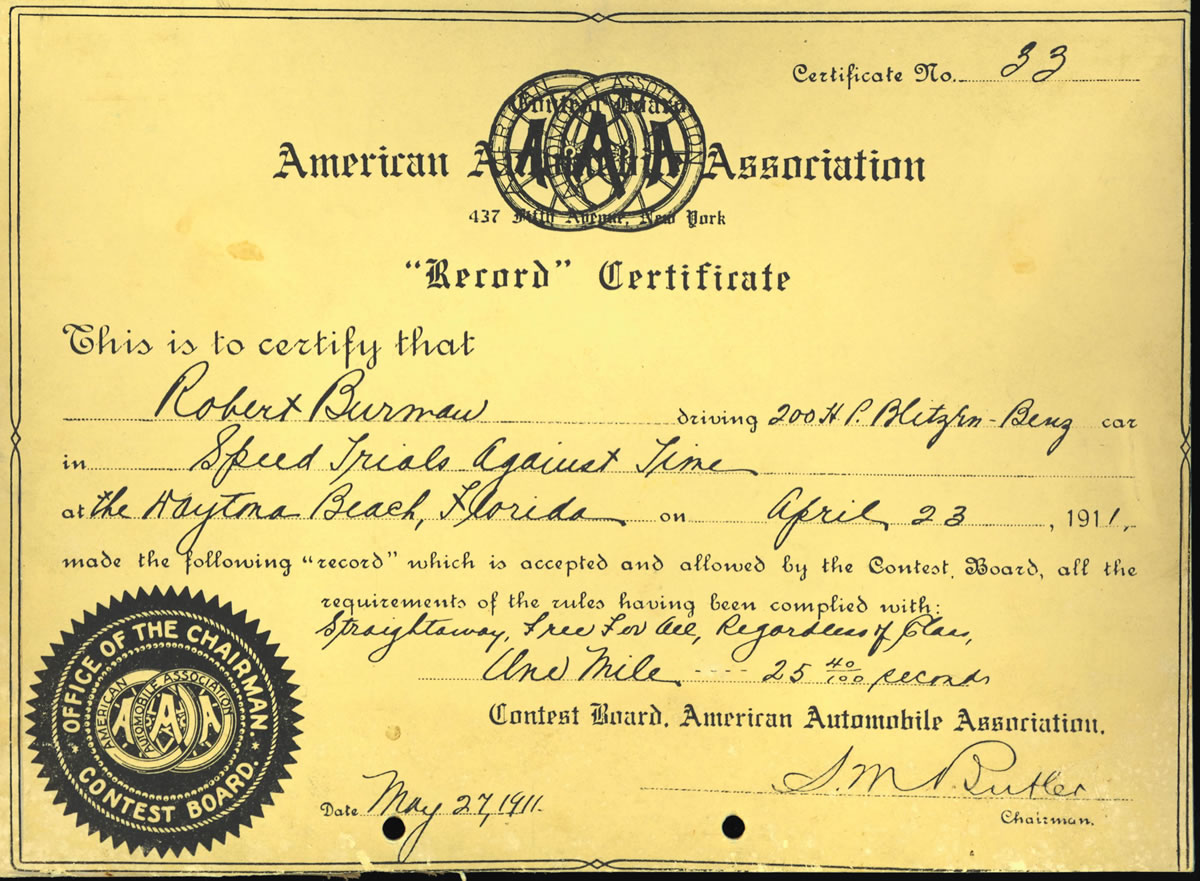 Certificate No. 33
AMERICAN AUTOMOBILE ASSOCIATION
AAA
Contest Board
American Automobile Association
437 Fifth Avenue, New York
"Record" Certificate
This is to certify that
Robert Burman driving 200 H P. Blitzen-Benz car
in Speed Trials Against Time
at the Daytona Beach, Florida on April 23, 1911,
made the following "record" which is accepted and allowed by the Contest Board, all the
requirements of the rules having been complied with:
Straightaway, Free For All, Regardless of Class,
One Mile ---- 25 40/100 seconds
Contest Board, American Automobile Association.
S. M. Butler
Chairman.
Date May 27, 1911.
OFFICE OF THE CHAIRMAN
AMERICAN AUTOMOBILE ASSOCIATION
AAA
CONTEST BOARD.